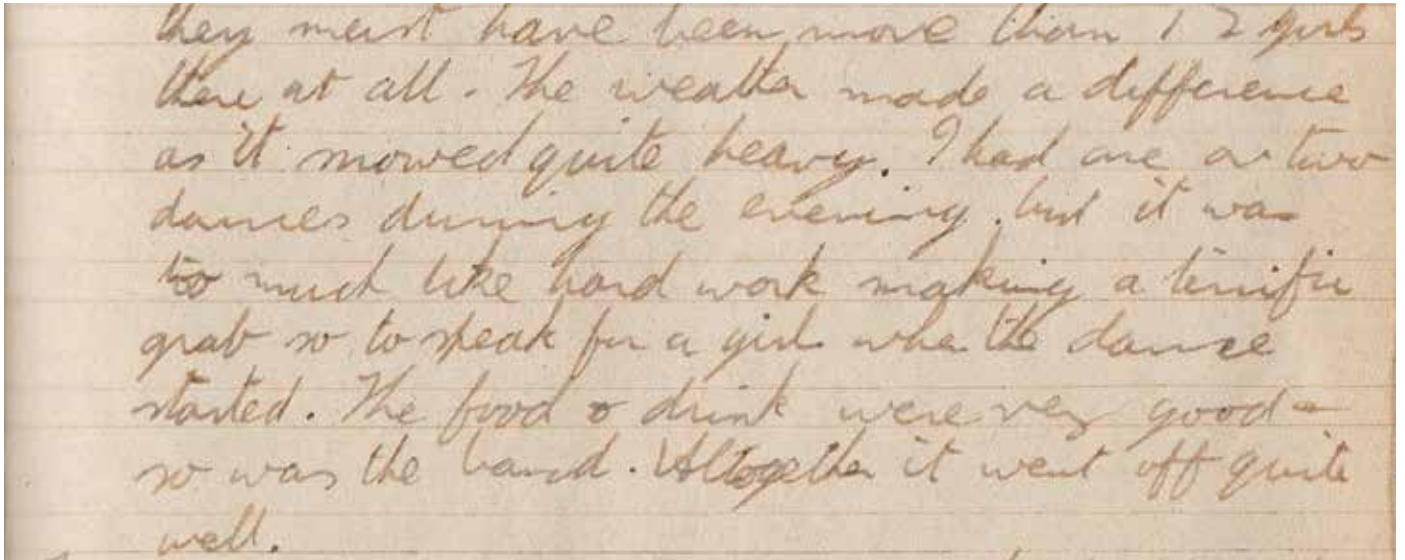 they must have been more than 12 girls
there at all. The weather made a difference
as it snowed quite heavy. I had one or two
dances during the evening, but it was
too much like hard work making a terrific
grab so to speak for a girl when the dance
started. The food & drink were very good -
so was the band. Altogether it went off quite
well.